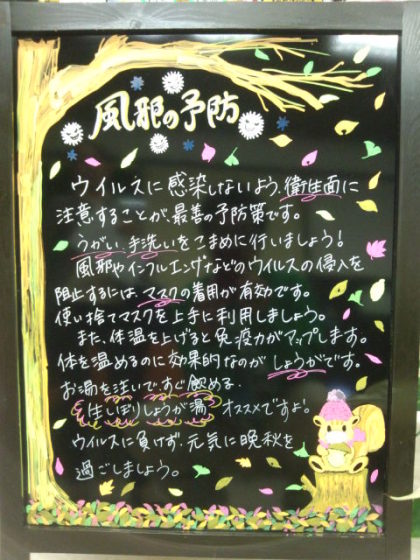 風邪の予防
ウイルスに感染しないよう、衛生面に
注意することが、最善の予防策です。
うがい、手洗いをこまめに行いましょう!
風邪やインフルエンザなどのウイルスの侵入を
阻止するには、マスクの着用が有効です。
使い捨てマスクを上手に利用しましょう。
また、体温を上げると免疫力がアップします。
体を温めるのに効果的なのが しょうがです。
お湯を注いで、すぐ飲める
生しぼりしょうが湯 オススメですよ!
ウイルスに負けず、元気に晩秋を
過ごしましょう。